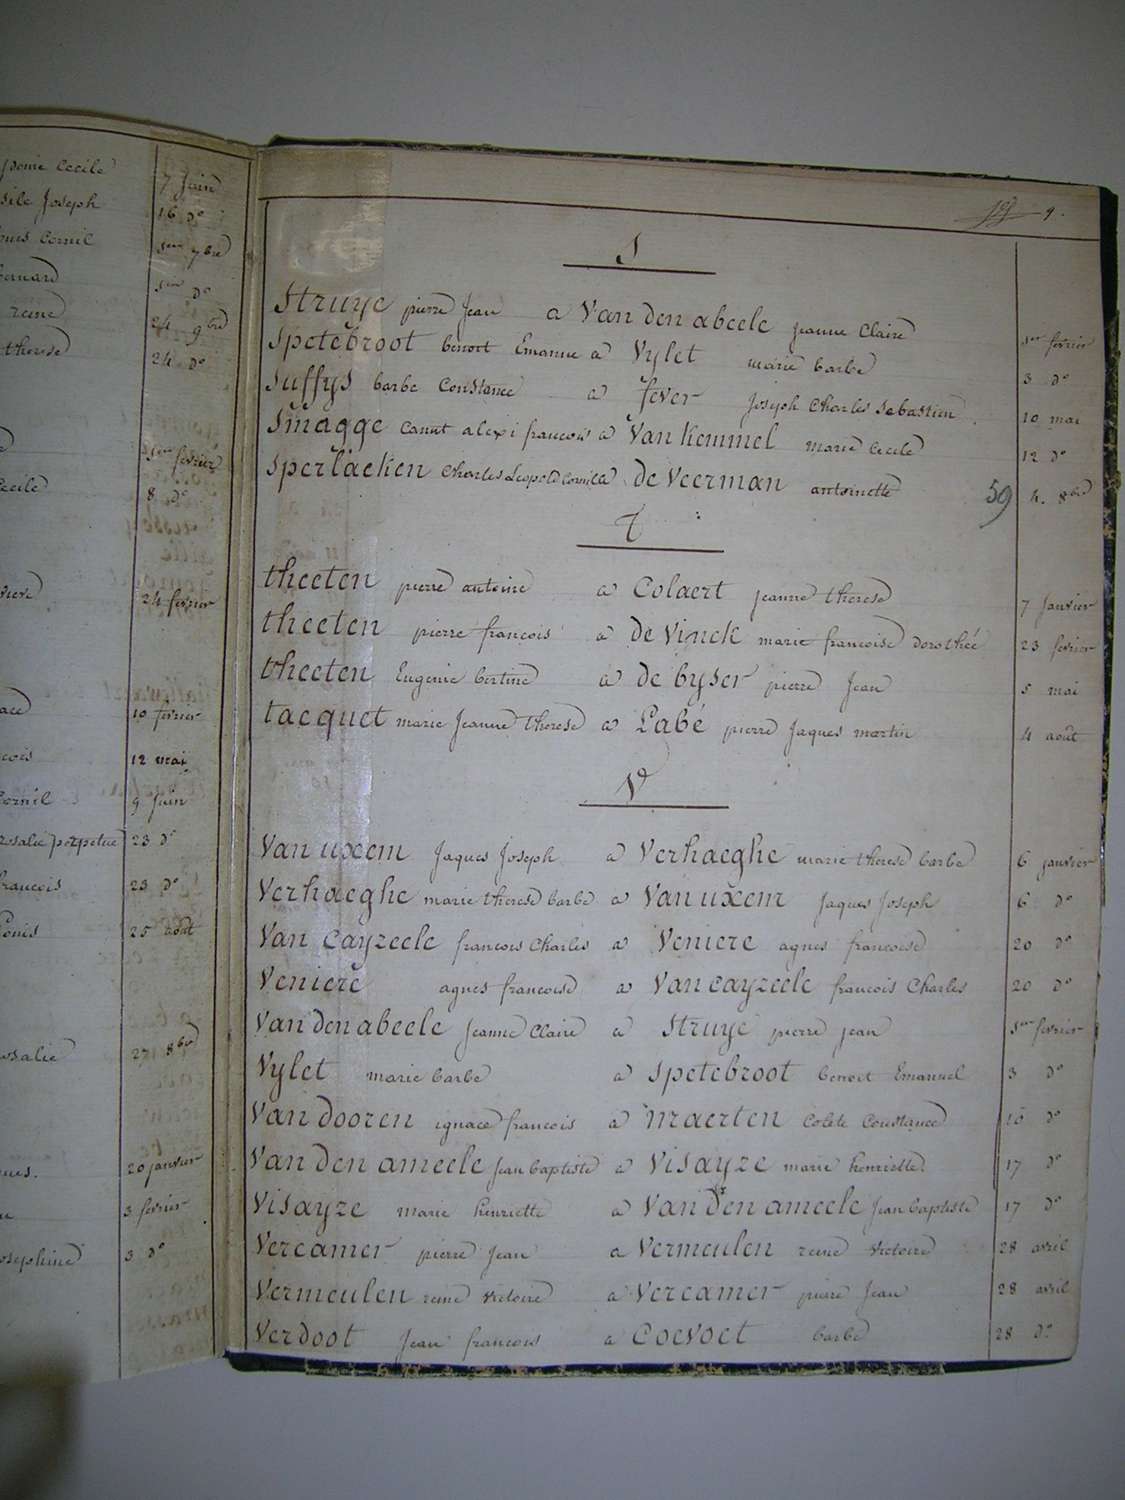 Cecile 7 Juin
Joseph 16 do
Cornil 1er 7bre
1er do
reine 24 9bre
therese 24 do
1er fevrier
8 do
24 fevrier
10 fevrier
12 mai
9 Juin
rosalie perpetue 23 do
francois 23 do
Louis 25 août
27 8bre
20 janvier
3 fevrier
Josephine 3 do
9.
S
Struye pierre Jean a Van den abeele Jeanne Claire 1er fevrier
Spetebroot benoit Emanue a Vylet marie barbe 3 do
Suffys barbe Constance a fever Joseph Charles Sebastien 10 mai
Smagge Canut alexi francois a Van Kemmel marie Cecile 12 do
Sperlaeken Charles Leopold Cornil a de Veerman antoinette 4. 8bre
59
T
theeten pierre antoine a Colaert jeanne therese 7 Janvier
theeten pierre francois a de Vinck marie francoise dorothée 23 fevrier
theeten Eugenie bertine a de byser pierre Jean 5 mai
tacquet marie Jeanne therese a Labé pierre Jaques martin 4 août
V
Van uxem Jaques Joseph a Verhaeghe marie therese barbe 6 janvier
Verhaeghe marie therese barbe a Van uxem Jaques Joseph 6 do
Van Cayzeele francois Charles a Veniere agnes francoise 20 do
Veniere agnes francoise a Van cayzeele francois Charles 20 do
Van den abeele Jeanne Claire a Struye pierre jean 1er fevrier
Vylet marie barbe a Spetebroot benoit Emanuel 3 do
Van dooren ignace francois a maerten Colete Constance 10 do
Van den ameele Jean baptiste a Visayze marie henriette 17 do
Visayze marie henriette a Van Den ameele Jean baptiste 17 do
Vercamer pierre Jean a Vermeulen reine victoire 28 avril
Vermeulen reine victoire a Vercamer pierre Jean 28 avril
Verdoot Jean francois a Coevoet barbe 28 do